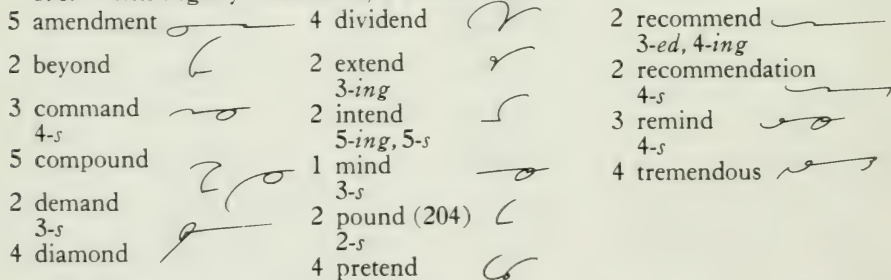 5 amendment
2 beyond
3 command
4-s
5 compound
2 demand
3-s
4 diamond
4 dividend
2 extend
3-ing
2 intend
5-ing, 5-s
1 mind
3-s
2 pound (204)
2-s
4 pretend
2 recommend
3-ed, 4-ing
2 recommendation
4-s
3 remind
4-s
4 tremendous